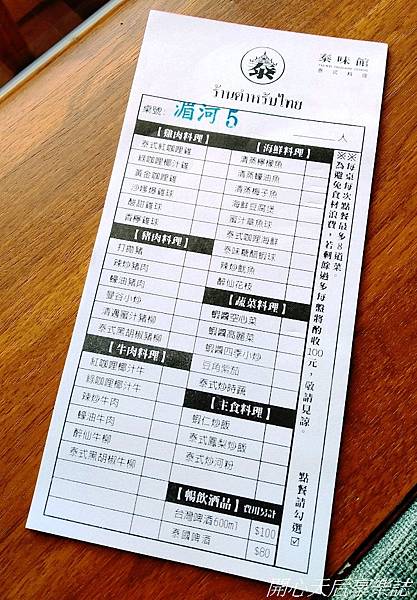 泰
泰味館
泰式料理
ร้านตำหรับไทย
桌號: 湄河5
人
【雞肉料理】
泰式紅咖哩雞
綠咖哩椰汁雞
黃金咖哩雞
沙嗲爆雞球
酸甜雞球
青檸雞球
【豬肉料理】
打拋豬
辣炒豬肉
蠔油豬肉
曼谷小炒
清邁蜜汁豬柳
泰式黑胡椒豬柳
【牛肉料理】
紅咖哩椰汁牛
綠咖哩椰汁牛
辣炒牛肉
蠔油牛肉
醉仙牛柳
泰式黑胡椒牛柳
【海鮮料理】
清蒸檸檬魚
清蒸蠔油魚
清蒸梅子魚
海鮮豆腐煲
蜜汁章魚球
泰式咖哩海鮮
泰味糖醋蝦球
辣炒魷魚
醉仙花枝
【蔬菜料理】
蝦醬空心菜
蝦醬高麗菜
蝦醬四季小炒
豆角紫茄
泰式炒時蔬
【主食料理】
蝦仁炒飯
泰式鳳梨炒飯
泰式炒河粉
【暢飲酒品】費用另計
台灣啤酒600ml $100
泰國啤酒 $80
※每桌每次點餐最多8道菜。
※為避免食材浪費，若剩餘過多每盤將酌收100元，敬請見諒。
點餐請勾選☑
開心天后享樂誌